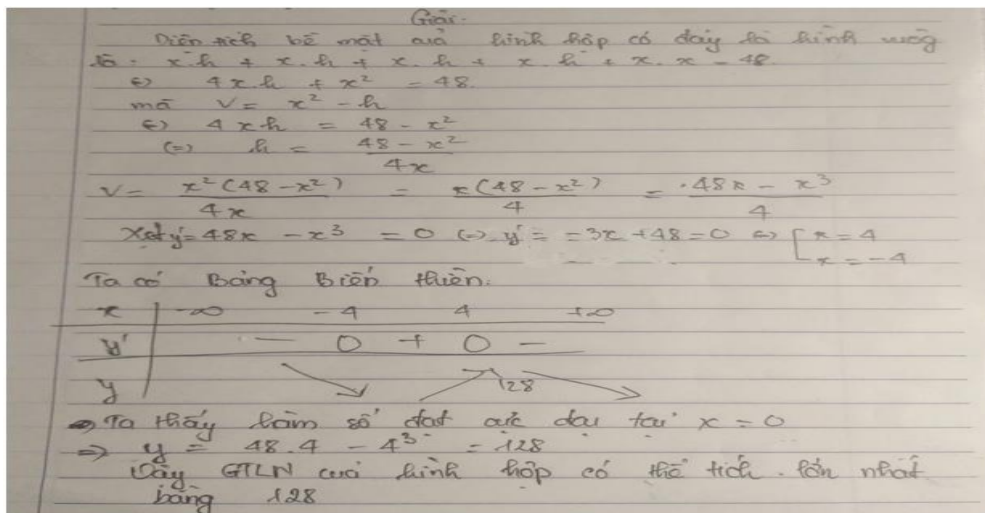 Giải.
Diện tích bề mặt của hình hộp có đáy là hình vuông
là: x.h + x.h + x.h + x.h + x.x = 48
⇔ 4x.h + x² = 48.
mà V = x² - h
⇔ 4xh = 48 - x²
(=) h = (48 - x²)/4x
V = x²(48 - x²)/4x = x(48 - x²)/4 = .48x - x³/4
Xét y' = 48x - x³ = 0 (=) y' = =3x + 48 = 0 ⇔ [x = 4 [x = -4
Ta có Bảng Biến thiên:
x | -∞ -4 4 +∞
y' | - 0 + 0 -
y | 128
⇒ Ta thấy hàm số đạt cực đại tại x = 0
⇒ y = 48.4 - 4³ = 128
Vậy GTLN của hình hộp có thể tích lớn nhất
bằng 128